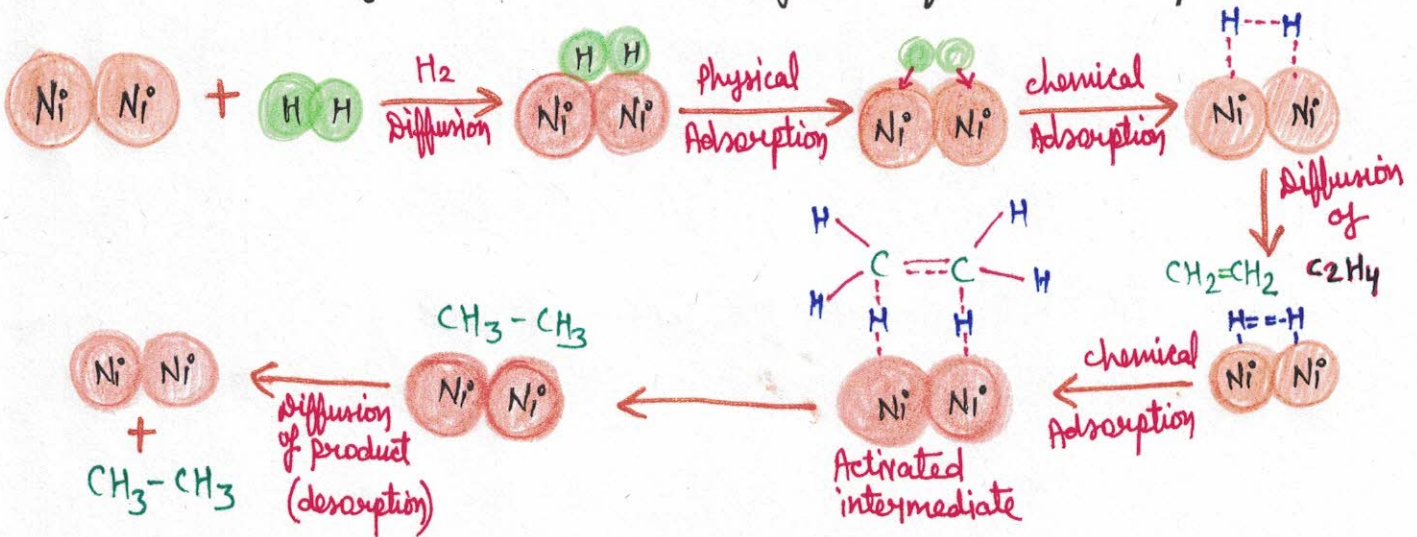 Ni Ni + H H
H2
Diffusion
H H
Ni Ni
Physical
Adsorption
Ni Ni
chemical
Adsorption
H---H
Ni Ni
Diffusion
of
CH2=CH2 C2H4
H==-H
Ni Ni
chemical
Adsorption
H H
C C
H H
H H
Ni Ni
Activated
intermediate
CH3-CH3
Ni Ni
Diffusion
of product
(desorption)
Ni Ni
+
CH3-CH3